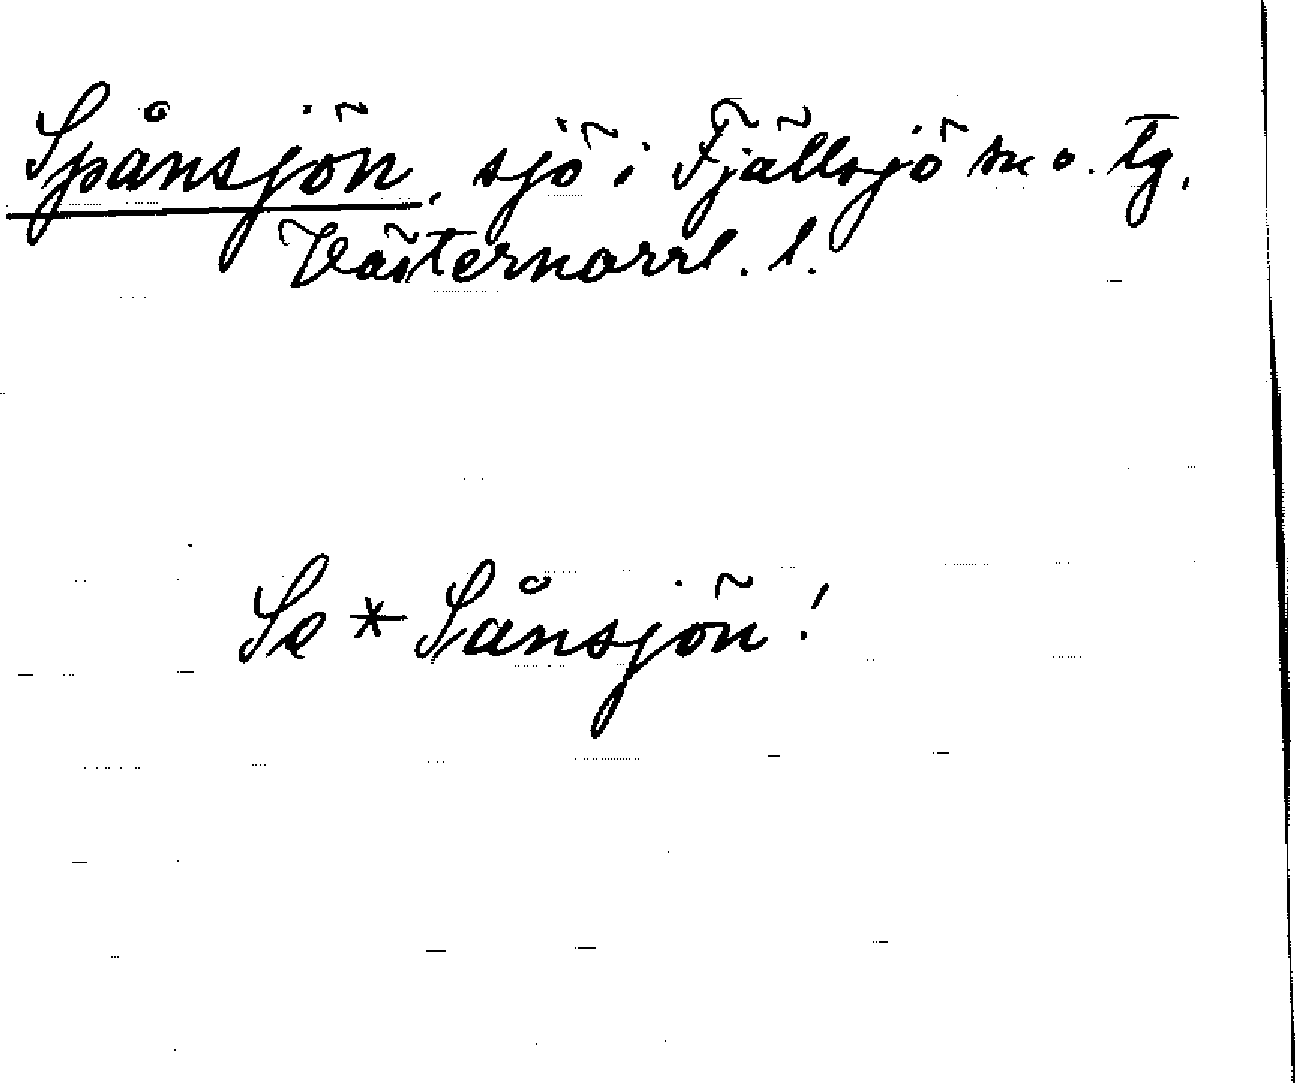 Spånsjön, sjö i Fjällsjö sn o. tg,
Västernorrl. l.
Se * Sånsjön!